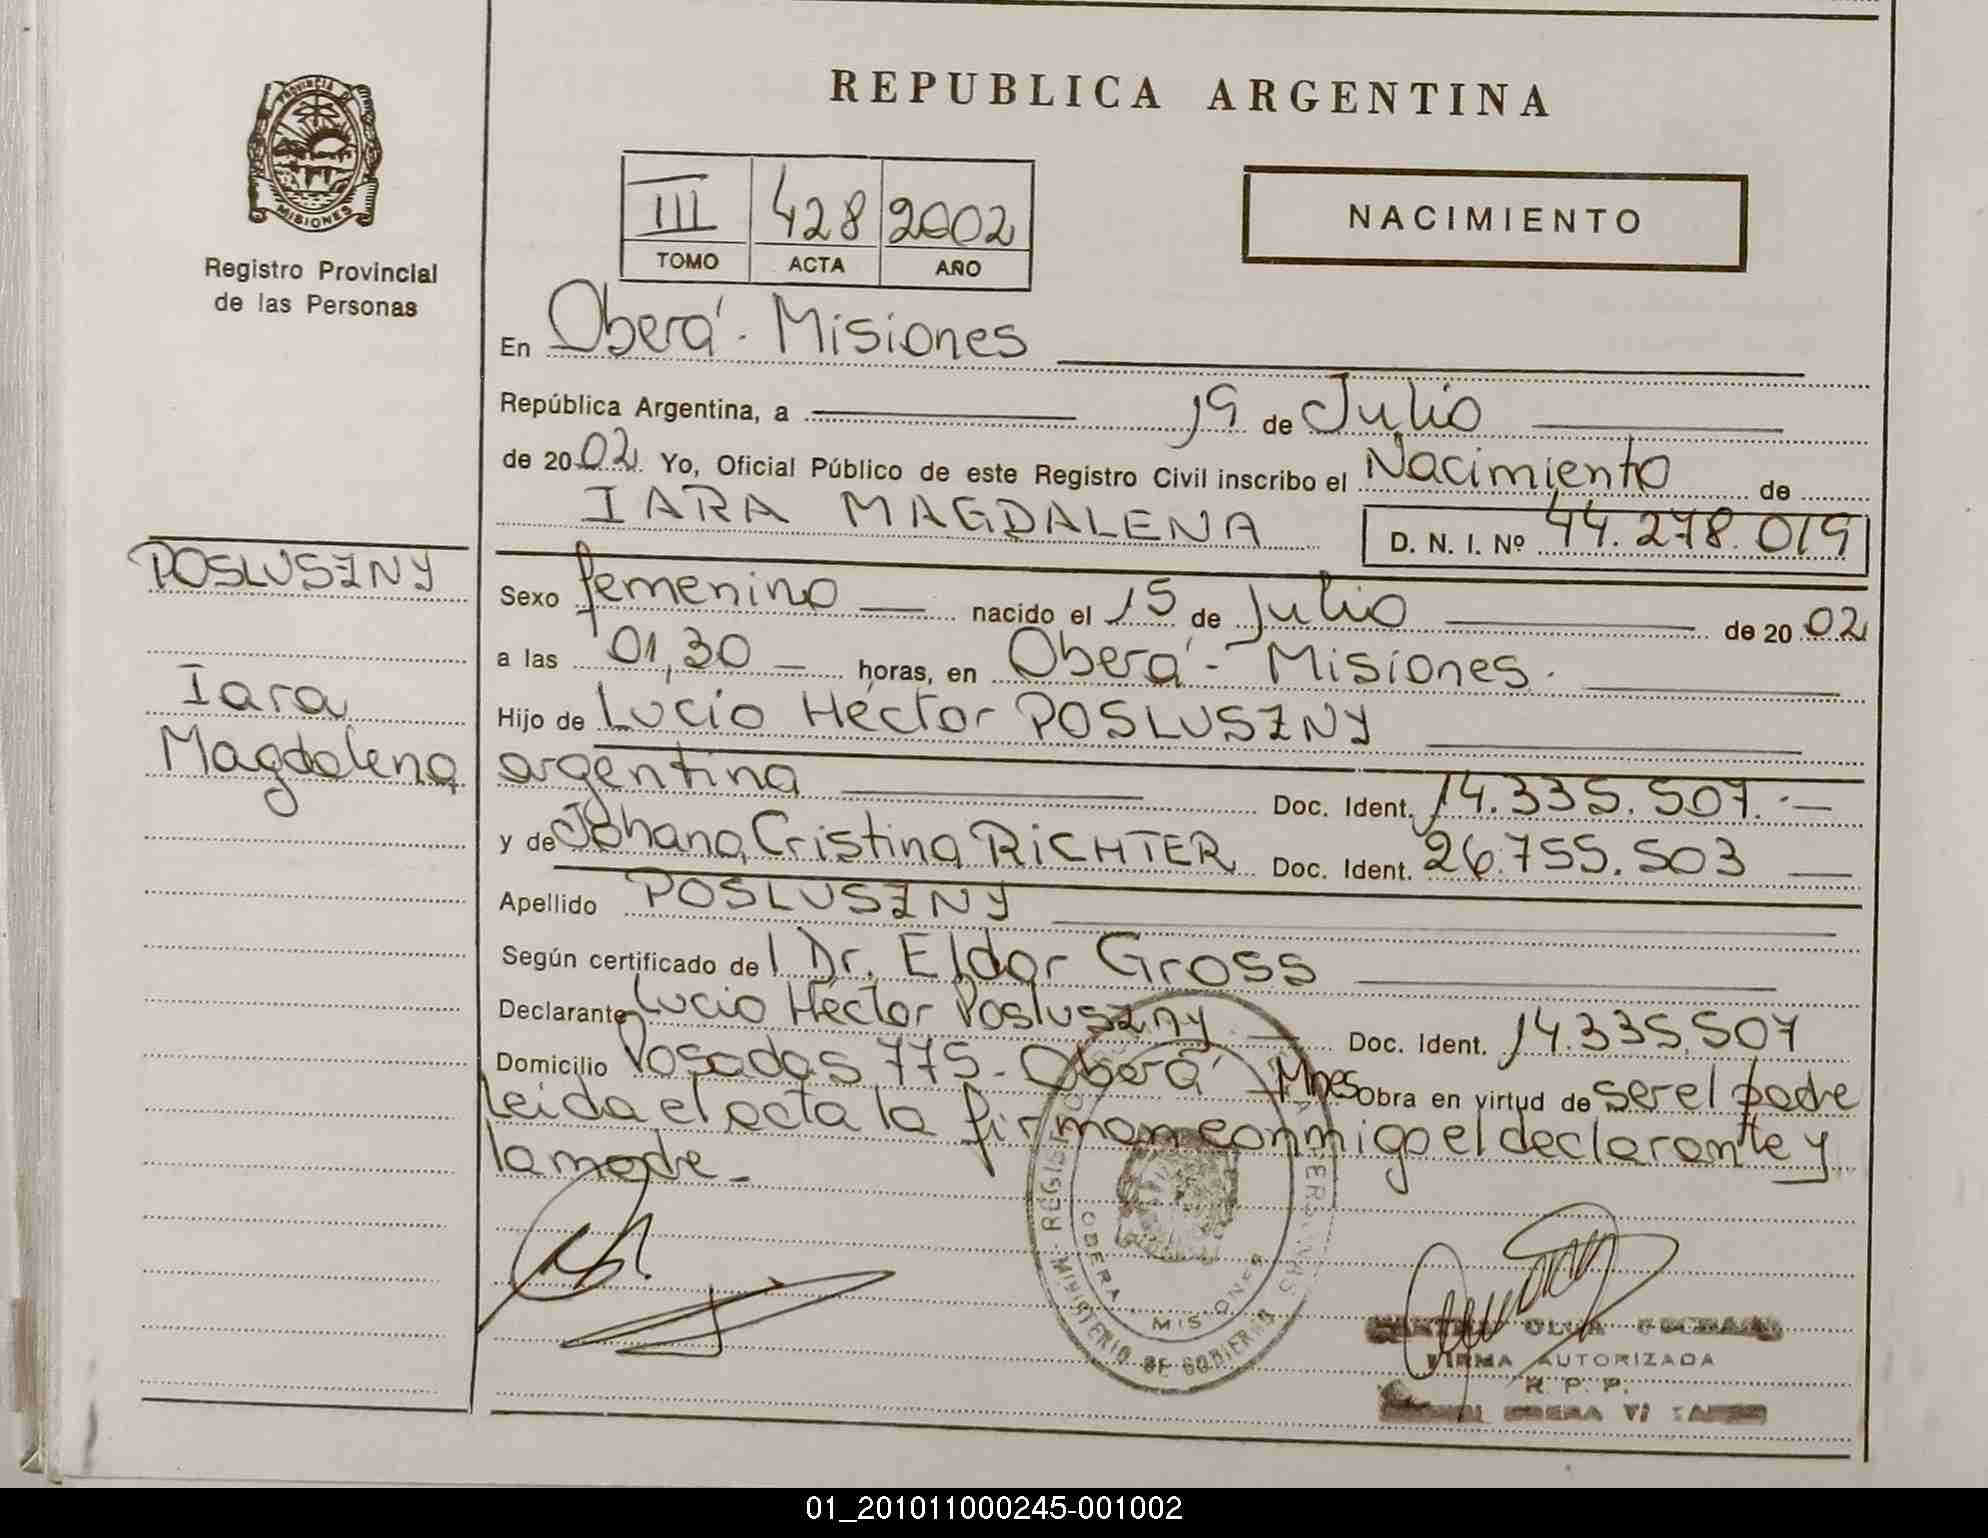 PROVINCIA DE
MISIONES
Registro Provincial
de las Personas
POSLUSZNY
Iara
Magdalena
REPUBLICA ARGENTINA
III 428 2002
TOMO ACTA AÑO
NACIMIENTO
En Oberá - Misiones
República Argentina, a 19 de Julio
de 2002 Yo, Oficial Público de este Registro Civil inscribo el Nacimiento de
IARA MAGDALENA D. N. I. Nº 44.278.019
Sexo femenino nacido el 15 de Julio de 2002
a las 01,30 horas, en Oberá - Misiones.
Hijo de Lucio Héctor POSLUSZNY
argentina Doc. Ident. 14.335.507.-
y de Johana Cristina RICHTER Doc. Ident. 26.755.503
Apellido POSLUSZNY
Según certificado del Dr. Eldor Gross
Declarante Lucio Héctor Posluszny Doc. Ident. 14.335.507
Domicilio Posadas 775 - Oberá Mnes Obra en virtud de ser el padre
leida el acta la firman conmigo el declarante y
la madre -
MINISTERIO DE GOBIERNO
OBERA MISIONES
OLGA
FIRMA AUTORIZADA
R. P. P.
OBERA
01_201011000245-001002